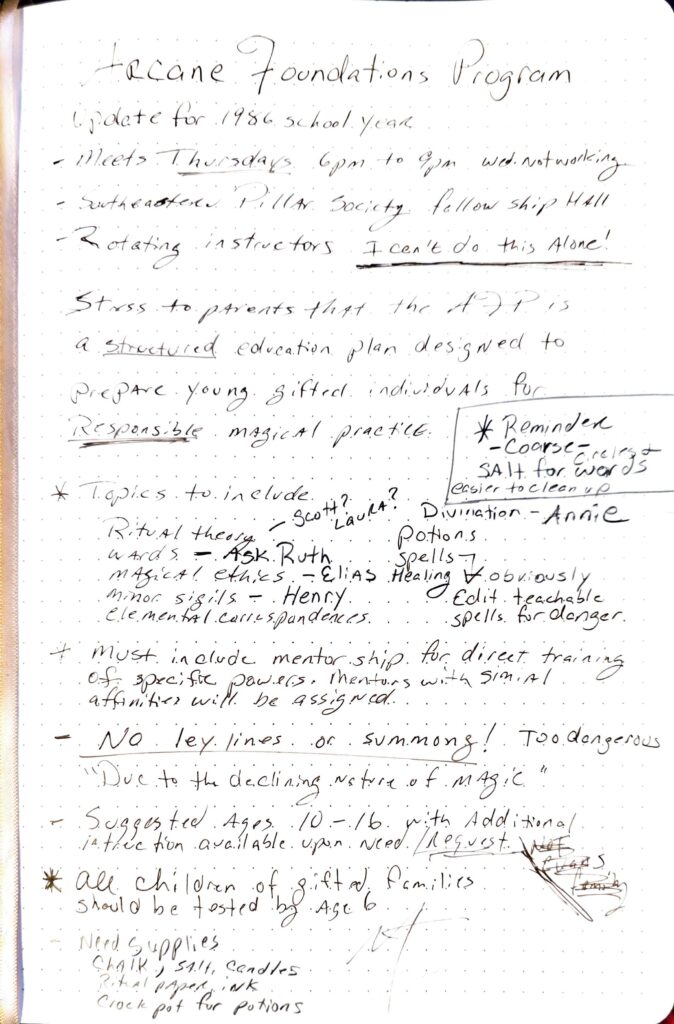 Arcane Foundations Program
Update for 1986 school year
- Meets Thursdays 6pm to 9pm wed. not working
- Southeastern Pillar Society fellow ship Hall
- Rotating instructors I can't do this Alone!
Stress to parents that the AFP is
a structured education plan designed to
prepare young gifted individuals for
Responsible magical practice.
* Reminder
- Coarse -
SALT for wards
circles &
easier to clean up
* Topics to include
Ritual theory - Scott? Laura?
wards - Ask Ruth
magical ethics - Elias
minor sigils - Henry
elemental correspondences
Divination - Annie
potions
spells
Healing obviously
Edit teachable
spells for danger.
+ must include mentor ship for direct training
of specific powers. Mentors with simial
affinities will be assigned.
- No ley lines or summong! Too dangerous
"Due to the declining nature of magic"
- Suggested Ages 10-16 with Additional
intruction available upon need/Request
* All children of gifted families
should be tested by Age 6
- Need supplies
Chalk, salt, candles
Ritual paper, ink
Crock pot for potions